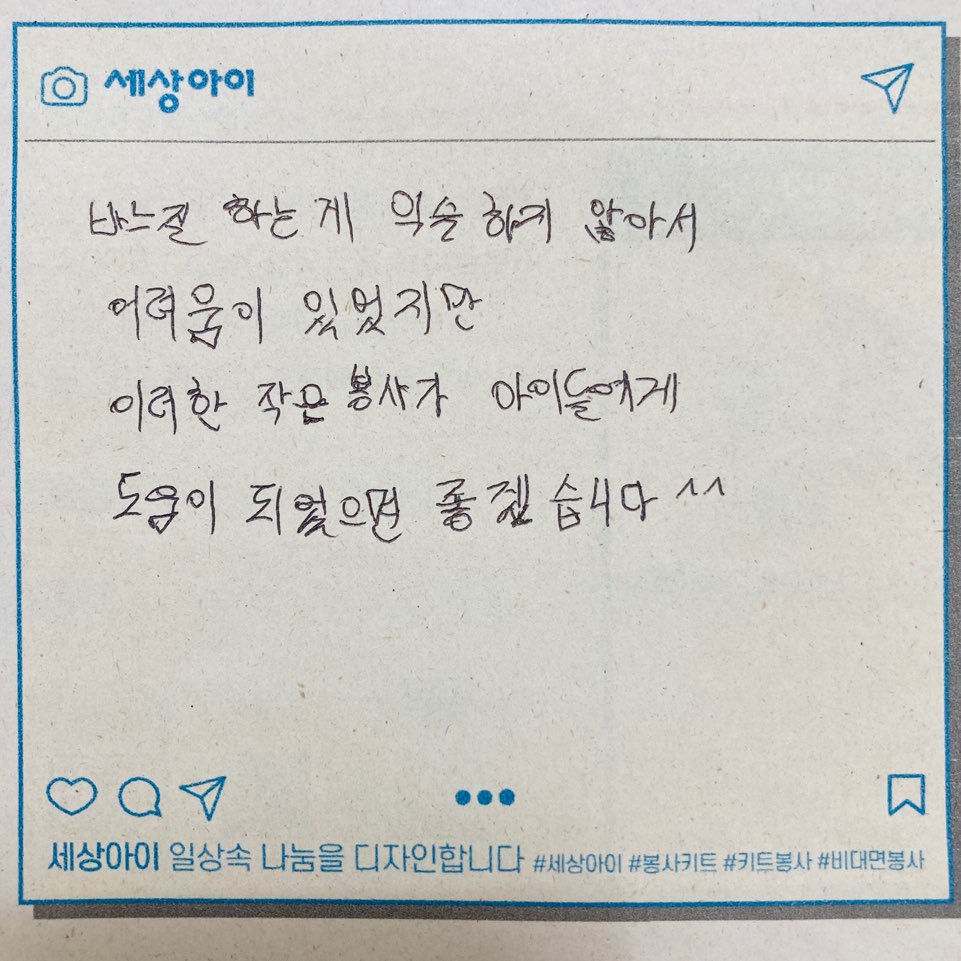 세상아이
바느질 하는게 익숙하지 않아서
어려움이 있었지만
이러한 작은 봉사가 아이들에게
도움이 되었으면 좋겠습니다 ^^
세상아이 일상속 나눔을 디자인합니다 #세상아이 #봉사키트 #키트봉사 #비대면봉사